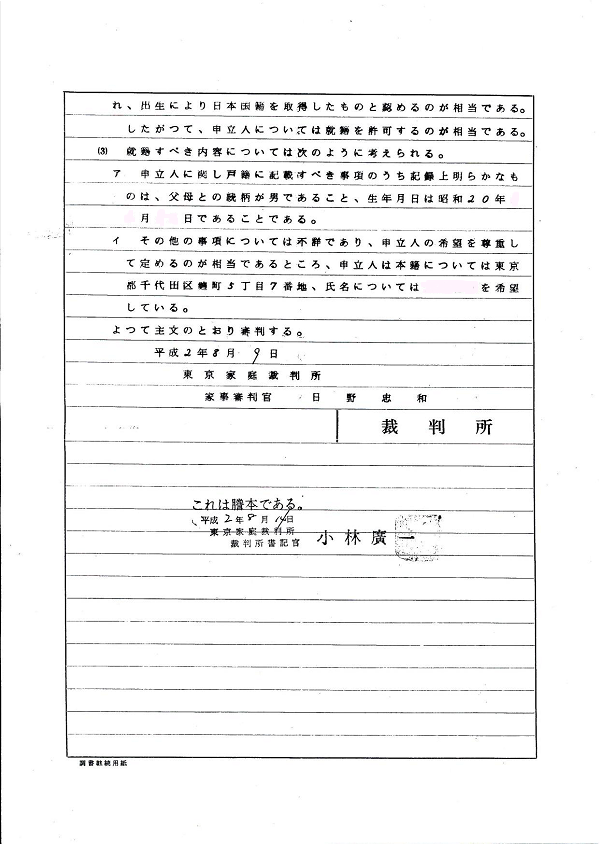 れ、出生により日本国籍を取得したものと認めるのが相当である。
したがつて、申立人については就籍を許可するのが相当である。
(3) 就籍すべき内容については次のように考えられる。
ア 申立人に関し戸籍に記載すべき事項のうち記録上明らかなも
のは、父母との続柄が男であること、生年月日は昭和20年
月 日であることである。
イ その他の事項については不詳であり、申立人の希望を尊重し
て定めるのが相当であるところ、申立人は本籍については東京
都千代田区麹町5丁目7番地、氏名については を希望
している。
よつて主文のとおり審判する。
平成2年8月9日
東京家庭裁判所
家事審判官 日野忠和
裁判所
これは謄本である。
平成2年8月14日
東京家庭裁判所
裁判所書記官 小林廣一
調書継続用紙